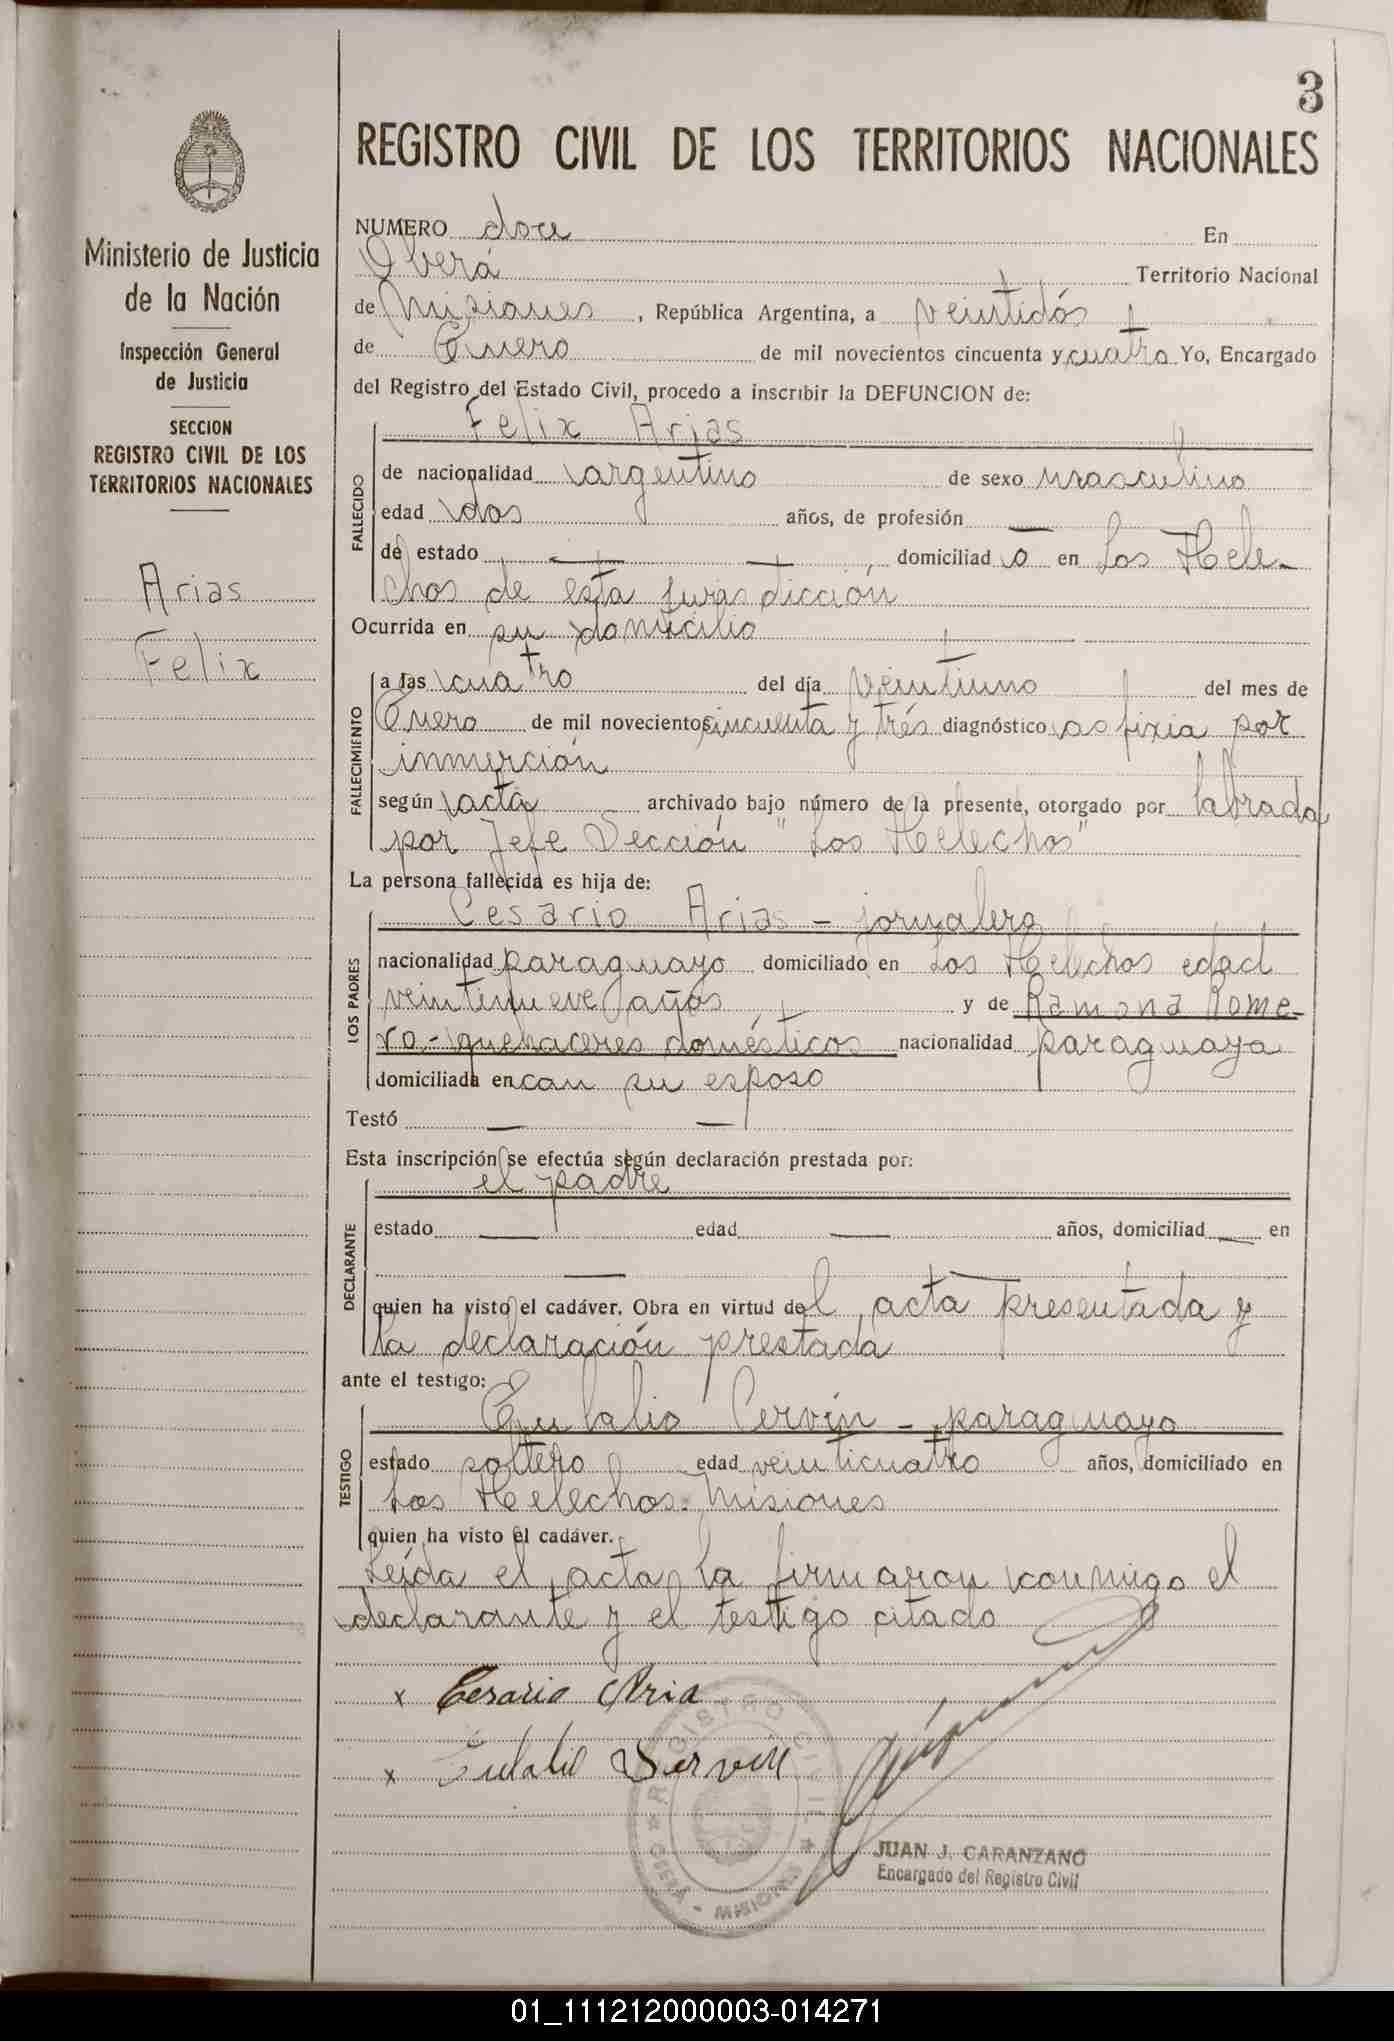 3
REGISTRO CIVIL DE LOS TERRITORIOS NACIONALES
Ministerio de Justicia
de la Nación
Inspección General
de Justicia
SECCION
REGISTRO CIVIL DE LOS
TERRITORIOS NACIONALES
Arias
Felix
NUMERO doce En
Oberá Territorio Nacional
de Misiones, República Argentina, a veintidós
de Enero de mil novecientos cincuenta y cuatro Yo, Encargado
del Registro del Estado Civil, procedo a inscribir la DEFUNCION de:
FALLECIDO
Felix Arias
de nacionalidad argentino de sexo masculino
edad dos años, de profesión —
de estado — — , domiciliad o en Los Hele-
chos de esta jurisdicción
Ocurrida en su domicilio
FALLECIMIENTO
a las cuatro del día veintiuno del mes de
Enero de mil novecientos cincuenta y trés diagnóstico asfixia por
inmerción
según acta archivado bajo número de la presente, otorgado por labrada
por Jefe Sección "Los Helechos"
La persona fallecida es hija de:
LOS PADRES
Cesario Arias - jornalero
nacionalidad paraguayo domiciliado en Los Helechos edad
veintinueve años y de Ramona Rome-
ro - quehaceres domésticos nacionalidad paraguaya
domiciliada en con su esposo
Testó — —
Esta inscripción se efectúa según declaración prestada por:
DECLARANTE
el padre
estado — edad — años, domiciliad — en
— —
quien ha visto el cadáver. Obra en virtud del acta presentada y
la declaración prestada
ante el testigo:
TESTIGO
Eulalio Cervín - paraguayo
estado soltero edad veinticuatro años, domiciliado en
Los Helechos. Misiones
quien ha visto el cadáver.
Leída el acta la firmaron conmigo el
declarante y el testigo citado
x Cesario Aria
x Eulalio Servin
REGISTRO CIVIL
OBERA - MISIONES
JUAN J. CARANZANO
Encargado del Registro Civil
01_111212000003-014271